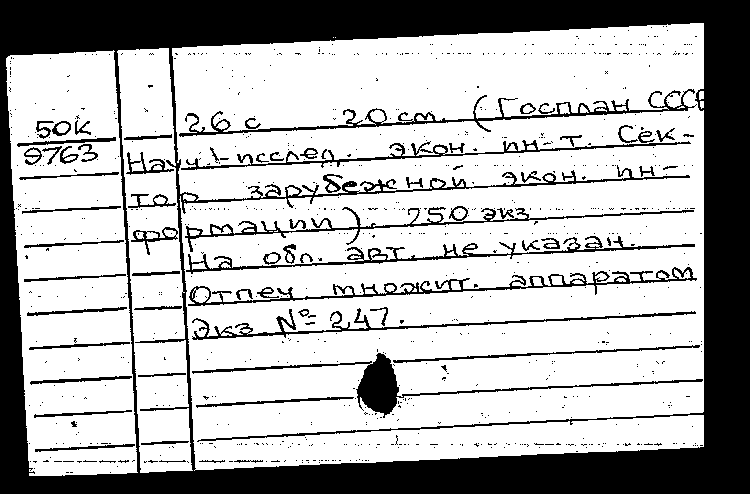 50К
9763
26 с 20 см. (Госплан СССР
Науч.-исслед. экон. ин-т. Сек-
тор зарубежной экон. ин-
формации). 250 экз.
На обл. авт. не указан.
Отпеч. множит. аппаратом
Экз. № 247.